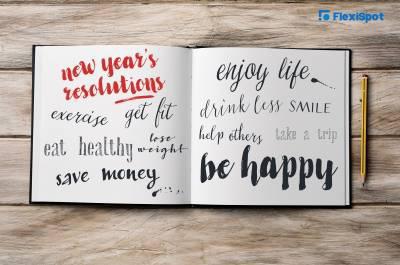 FlexiSpot
new year's
resolutions
exercise get fit
eat healthy lose weight
save money
enjoy life
drink less SMILE
help others take a trip
be happy